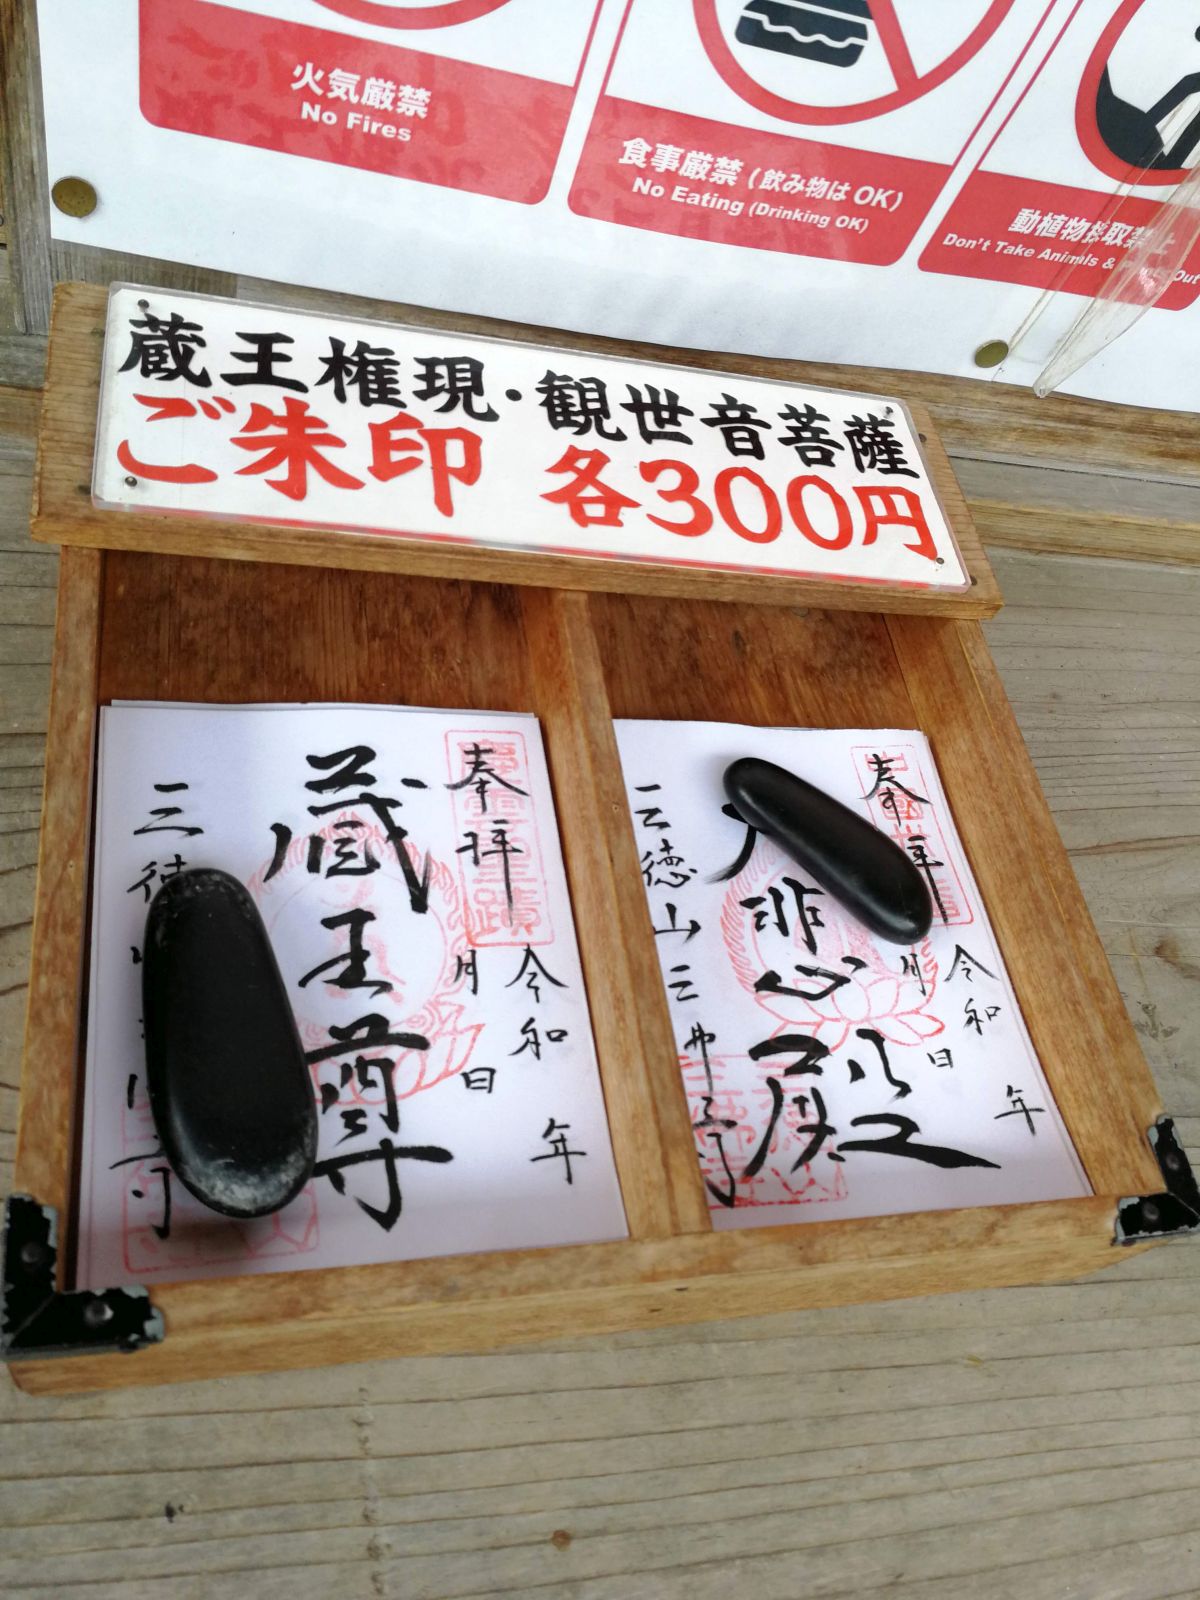 火気厳禁
No Fires
食事厳禁 (飲み物は OK)
No Eating (Drinking OK)
動植物採取禁止
Don't Take Animls & Out
蔵王権現・観世音菩薩
ご朱印 各300円
奉拝
令和 年
月 日
蔵王尊
三徳 寺
奉拝
令和 年
月 日
悲殿
三徳山三佛寺